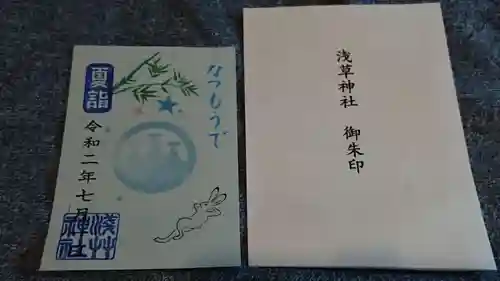 なつもうで
夏詣
令和二年七月
淺草神社
浅草神社　御朱印